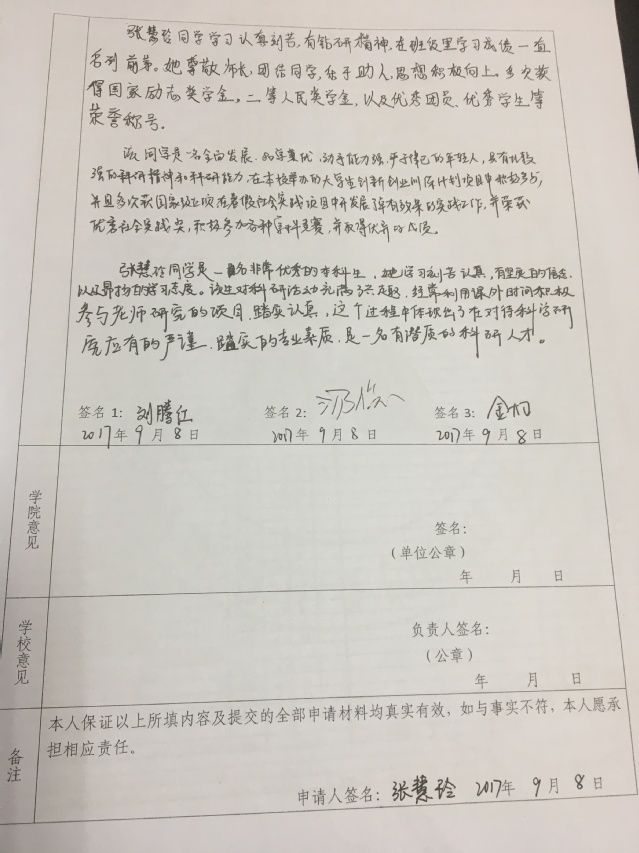 张慧玲同学学习认真刻苦,有钻研精神,在班级里学习成绩一直
名列前茅。她尊敬师长,团结同学,乐于助人,思想积极向上。多次获
得国家励志奖学金,二等人民奖学金,以及优秀团员、优秀学生等
荣誉称号。
该同学是一名全面发展、品学兼优、动手能力强、严于律己的年轻人,具有比较
强的科研精神和科研能力,在本校举办的大学生创新创业训练计划项目中积极参与,
并且多次获国家级立项,在暑假社会实践项目中开展富有效果的实践工作,并荣获
优秀社会实践奖,积极参加各种学科竞赛,并取得优异的成绩。
张慧玲同学是一名非常优秀的本科生,她学习刻苦认真,有坚定的信念
以及昂扬的学习态度。该生对科研活动充满了兴趣,经常利用课外时间积极
参与老师研究的项目,踏实认真,这个过程中体现出了在对待科学研
究应有的严谨、踏实的专业素质,是一名有潜质的科研人才。
签名 1:刘腾仁 签名 2: 签名 3:
2017年 9 月 8 日 2017年 9 月 8 日 2017年 9 月 8 日
学院意见
签名:
(单位公章)
年 月 日
学校意见
负责人签名:
(公章)
年 月 日
备注
本人保证以上所填内容及提交的全部申请材料均真实有效,如与事实不符,本人愿承
担相应责任。
申请人签名:张慧玲 2017年 9 月 8 日